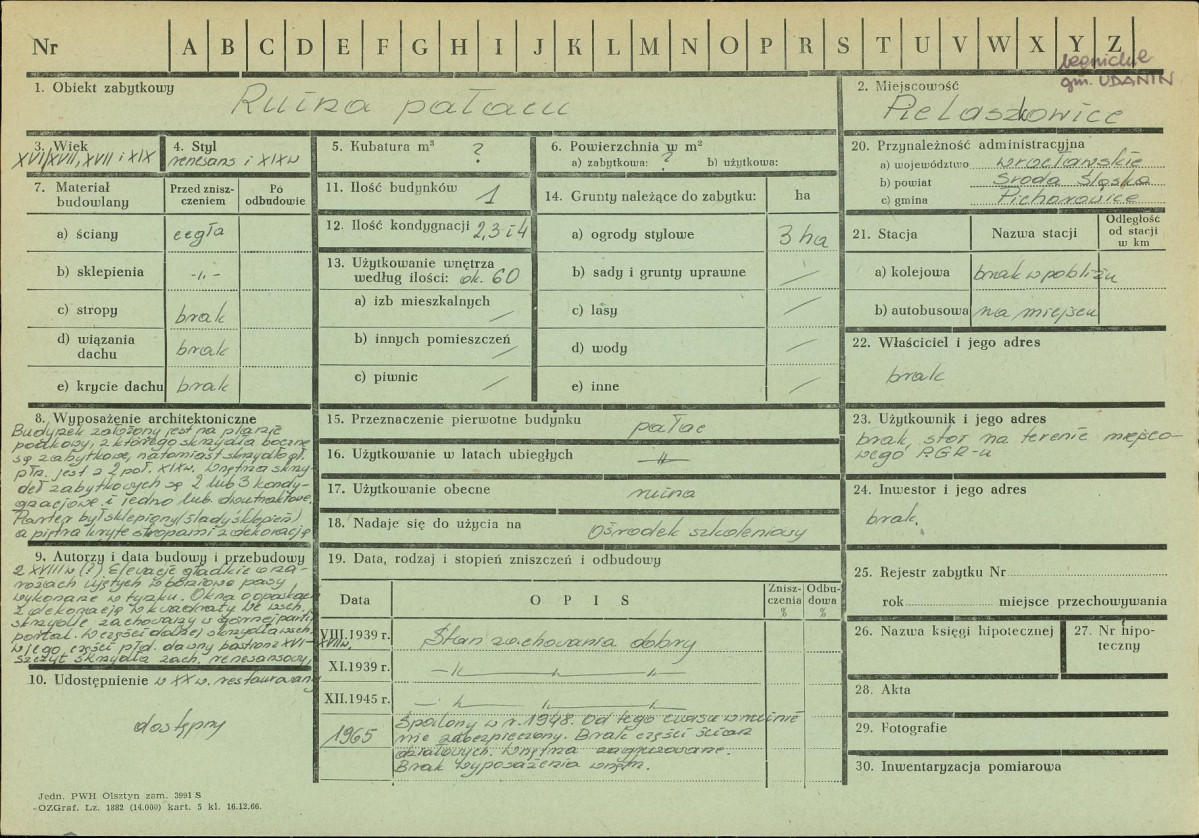 Nr A B C D E F G H I J K L M N O P R S T U V W X Y Z
legnickie
gm. UDANIN
1. Obiekt zabytkowy
Ruina pałacu
2. Miejscowość
Pielaszkowice
3. Wiek
XVI/XVII, XVII i XIX
4. Styl
renesans i XIX w
5. Kubatura m³
?
6. Powierzchnia w m²
a) zabytkowa: ? b) użytkowa:
20. Przynależność administracyjna
a) województwo wrocławskie
b) powiat Środa Śląska
c) gmina Pichorowice
7. Materiał budowlany
Przed zniszczeniem
Po odbudowie
a) ściany cegła
b) sklepienia -„-
c) stropy brak
d) wiązania dachu brak
e) krycie dachu brak
11. Ilość budynków 1
12. Ilość kondygnacji 2, 3 i 4
13. Użytkowanie wnętrza
według ilości: ok. 60
a) izb mieszkalnych /
b) innych pomieszczeń /
c) piwnic /
14. Grunty należące do zabytku: ha
a) ogrody stylowe 3 ha
b) sady i grunty uprawne /
c) lasy /
d) wody /
e) inne /
21. Stacja
Nazwa stacji
Odległość od stacji w km
a) kolejowa brak w pobliżu
b) autobusowa na miejscu
22. Właściciel i jego adres
brak
8. Wyposażenie architektoniczne
Budynek założony jest na planie
podkowy, z którego skrzydła boczne
są zabytkowe, natomiast skrzydło gł.
płn. jest z 2 poł. XIX w. Wnętrza skrzy-
deł zabytkowych są 2 lub 3 kondy-
gnacjowe i jedno lub dwutraktowe.
Parter był sklepiony (ślady sklepień)
a piętra kryte stropami z dekoracją
9. Autorzy i data budowy i przebudowy
z XVIII w (?). Elewacje gładkie o na-
rożach ujętych w boniowe pasy,
wykonane w tynku. Okna o opaskach
z dekoracją w kwadraty. We wsch.
skrzydle zachowany w górnej partii
portal. W części dolnej skrzydła wsch.
w jego części płd. dawny
szczyt skrzydła zach. renesansowy,
10. Udostępnienie w XX w. restaurowany
dostępny
15. Przeznaczenie pierwotne budynku pałac
16. Użytkowanie w latach ubiegłych -„-
17. Użytkowanie obecne ruina
18. Nadaje się do użycia na Ośrodek szkoleniowy
19. Data, rodzaj i stopień zniszczeń i odbudowy
Data
O P I S
Zniszczenia %
Odbudowa %
VIII.1939 r. Stan zachowania dobry
XI.1939 r. -„-
XII.1945 r. -„-
1965
Spalony w r. 1948. Od tego czasu w ruinie
nie zabezpieczony. Brak części ścian
działowych. Wnętrza zagruzowane.
Brak wyposażenia wnętrz.
23. Użytkownik i jego adres
brak, stoi na terenie miejsco-
wego P.G.R-u
24. Inwestor i jego adres
brak.
25. Rejestr zabytku Nr
rok miejsce przechowywania
26. Nazwa księgi hipotecznej
27. Nr hipoteczny
28. Akta
29. Fotografie
30. Inwentaryzacja pomiarowa
Jedn. PWH Olsztyn zam. 3991 S
-OZGraf. Lz. 1882 (14.000) kart. 5 kl. 16.12.66.